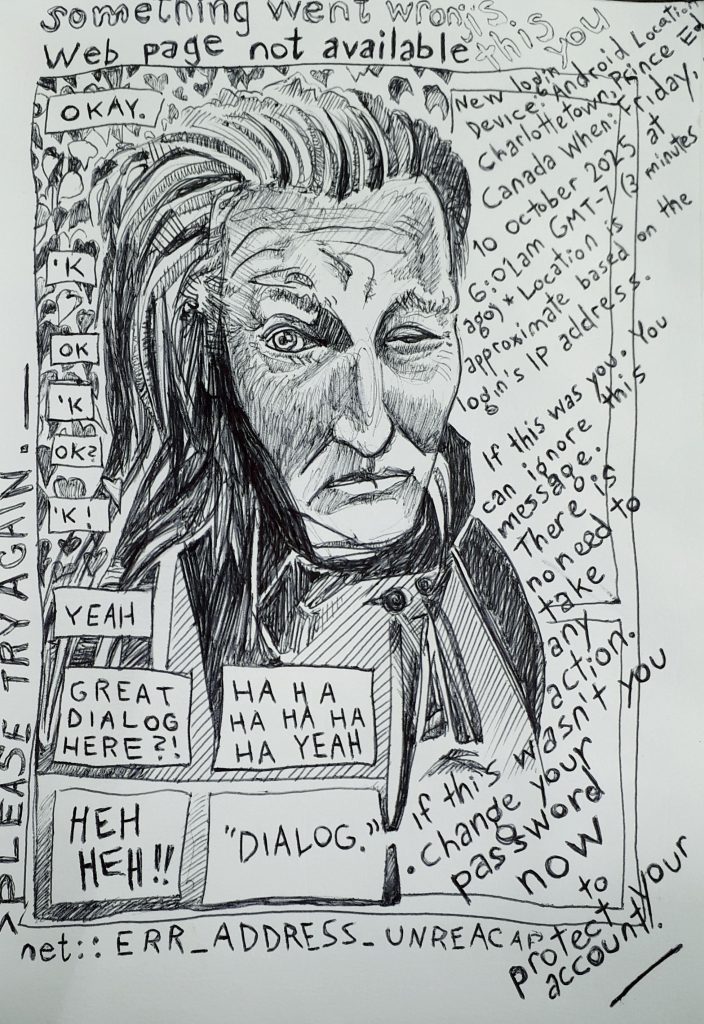 something went wrong.
Web page not available
this is you
OKAY.
'K
OK
'K
OK?
'K!
YEAH
GREAT
DIALOG
HERE?!
HA HA
HA HA HA
HA YEAH
HEH
HEH!!
"DIALOG."
>PLEASE TRY AGAIN.
New login
Device: Android Location
Charlottetown, Prince Ed
Canada When: Friday,
10 october 2025 at
6:01am GMT-7 (3 minutes
ago) * Location is
approximate based on the
login's IP address.
If this was you. You
can ignore this
message.
There is
no need to
take
any
action.
If this wasn't you
. change your
password
now
to
protect your
account!
net:: ERR_ADDRESS_UNREAC